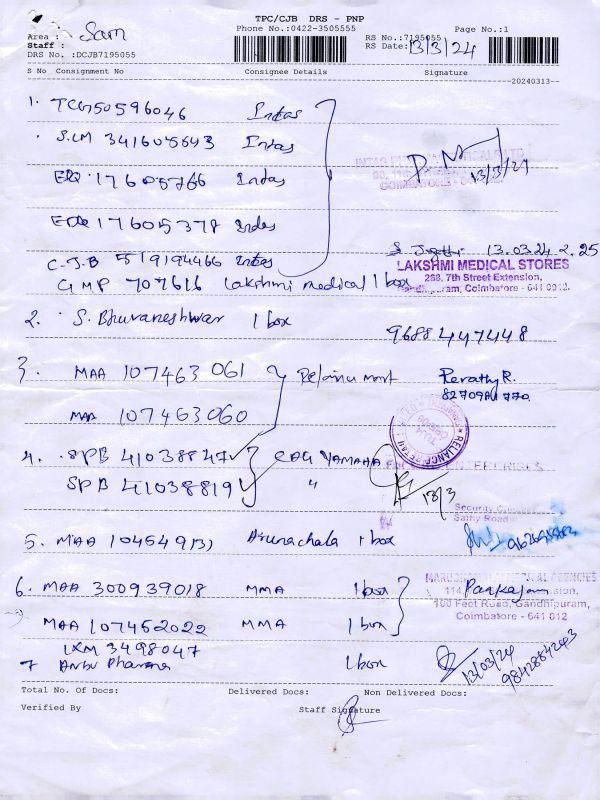 TPC/CJB DRS - PNP
Phone No.:0422-3505555
Page No.:1
Area : Sam
Staff :
DRS No. :DCJB7195055
RS No.:7195055
RS Date: 13/3/24
S No Consignment No Consignee Details Signature
20240313
1. TCG50596046 Intas
SLM 341605643 Intas
17605766 Intas
17605378 Intas
13/3/24
COIMBATORE
C.J.B 519194466 Intas
13.03.24 2.25
GMP 707616 Lakshmi medical 1 box
LAKSHMI MEDICAL STORES
268, 7th Street Extension,
Gandhipuram, Coimbatore - 641 012.
2. S. Bhuvaneshwar 1 box 9688447448
3. MAA 107463061 Reliance mart Revathy R.
MAA 107463060
RELIANCE RETAIL
4. SPB 41038847 CAG YAMAHA
ENTERPRISES
SPB 41038819 " 13/3
Sathy Road
5. MAA 104549131 Arunachala 1 box
6. MAA 300939018 MMA 1 box Pankajam
MEDICAL AGENCIES
100 Feet Road, Gandhipuram,
Coimbatore - 641 012
MAA 107452022 MMA 1 box
LKM 3498047
7 Anbu Pharma 1 box 13/03/24
9842884243
Total No. Of Docs: Delivered Docs: Non Delivered Docs:
Verified By Staff Signature